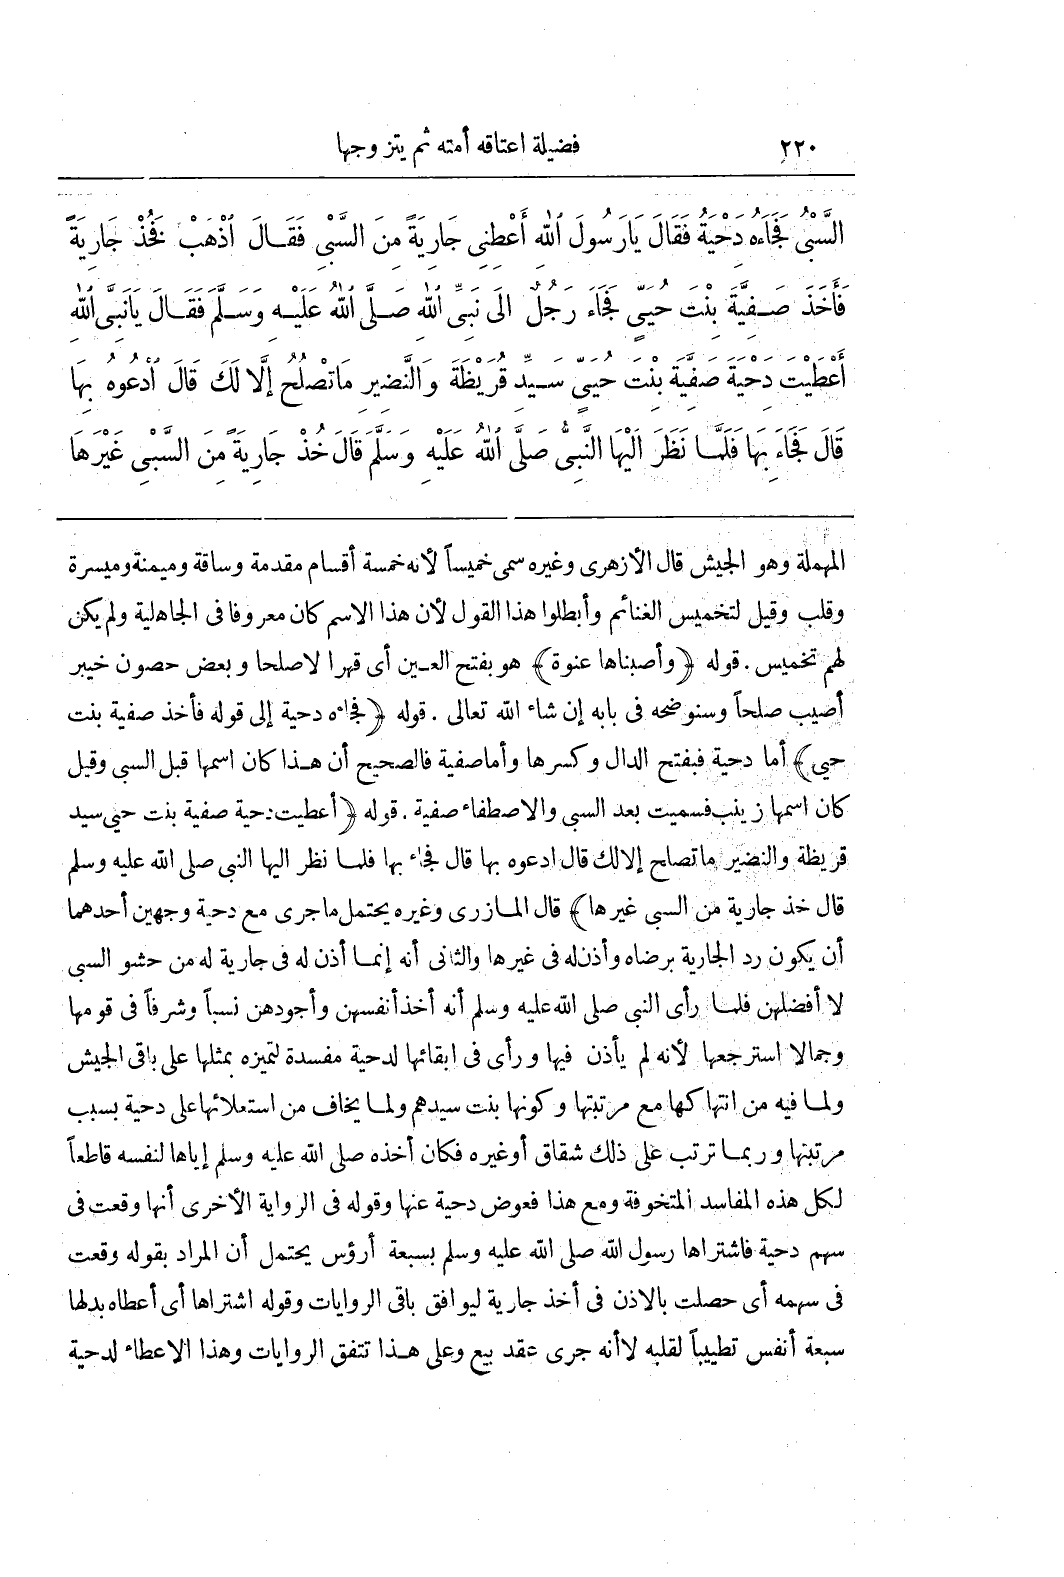 ٢٢٠ فضيلة اعتاقه أمته ثم يتزوجها
السَّبْىُ فَجَاءَهُ دَحْيَةُ فَقَالَ يَارَسُولَ اللهِ أَعْطِنِى جَارِيَةً مِنَ السَّبْىِ فَقَالَ اذْهَبْ فَخُذْ جَارِيَةً
فَأَخَذَ صَفِيَّةَ بِنْتَ حُيَىٍّ فَجَاءَ رَجُلٌ الَى نَبِىِّ اللهِ صَلَّى اللهُ عَلَيْهِ وَسَلَّمَ فَقَالَ يَانَبِىَّ اللهِ
أَعْطَيْتَ دَحْيَةَ صَفِيَّةَ بِنْتَ حُيَىٍّ سَيِّدِ قُرَيْظَةَ وَالنَّضِيرِ مَاتَصْلُحُ إلَّا لَكَ قَالَ ادْعُوهُ بِهَا
قَالَ فَجَاءَ بِهَا فَلَمَّا نَظَرَ الَيْهَا النَّبِىُّ صَلَّى اللهُ عَلَيْهِ وَسَلَّمَ قَالَ خُذْ جَارِيَةً مِنَ السَّبْىِ غَيْرَهَا
المهملة وهو الجيش قال الأزهرى وغيره سمى خميساً لأنه خمسة أقسام مقدمة وساقة وميمنة وميسرة
وقلب وقيل لتخميس الغنائم وأبطلوا هذا القول لأن هذا الاسم كان معروفا فى الجاهلية ولم يكن
لهم تخميس . قوله ﴿وأصبناها عنوة﴾ هو بفتح العين أى قهرا لاصلحا وبعض حصون خيبر
أصيب صلحاً وسنوضحه فى بابه إن شاء الله تعالى . قوله ﴿فجاءه دحية إلى قوله فأخذ صفية بنت
حيى﴾ أما دحية فبفتح الدال وكسرها وأما صفية فالصحيح أن هذا كان اسمها قبل السبى وقيل
كان اسمها زينب فسميت بعد السبى والاصطفاء صفية . قوله ﴿أعطيت دحية صفية بنت حيى سيد
قريظة والنضير ماتصلح إلالك قال ادعوه بها قال فجاء بها فلما نظر اليها النبى صلى الله عليه وسلم
قال خذ جارية من السبى غيرها﴾ قال المازرى وغيره يحتمل ماجرى مع دحية وجهين أحدهما
أن يكون رد الجارية برضاه وأذن له فى غيرها والثانى أنه إنما أذن له فى جارية له من حشو السبى
لا أفضلهن فلما رأى النبى صلى الله عليه وسلم أنه أخذ أنفسهن وأجودهن نسباً وشرفاً فى قومها
وجمالا استرجعها لأنه لم يأذن فيها ورأى فى ابقائها لدحية مفسدة لتميزه بمثلها على باقى الجيش
ولما فيه من انتهاكها مع مرتبتها وكونها بنت سيدهم ولما يخاف من استعلائها على دحية بسبب
مرتبتها وربما ترتب على ذلك شقاق أوغيره فكان أخذه صلى الله عليه وسلم إياها لنفسه قاطعاً
لكل هذه المفاسد المتخوفة ومع هذا فعوض دحية عنها وقوله فى الرواية الأخرى أنها وقعت فى
سهم دحية فاشتراها رسول الله صلى الله عليه وسلم بسبعة أرؤس يحتمل أن المراد بقوله وقعت
فى سهمه أى حصلت بالاذن فى أخذ جارية ليوافق باقى الروايات وقوله اشتراها أى أعطاه بدلها
سبعة أنفس تطييباً لقلبه لاأنه جرى عقد بيع وعلى هذا تتفق الروايات وهذا الاعطاء لدحية